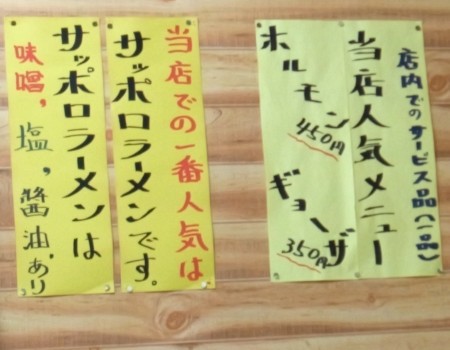 店内でのサービス品(一品)
当店人気メニュー
ホルモン
450円
ギョーザ
350円
当店での一番人気は
サッポロラーメンです。
サッポロラーメンは
味噌,塩,醤油,あり